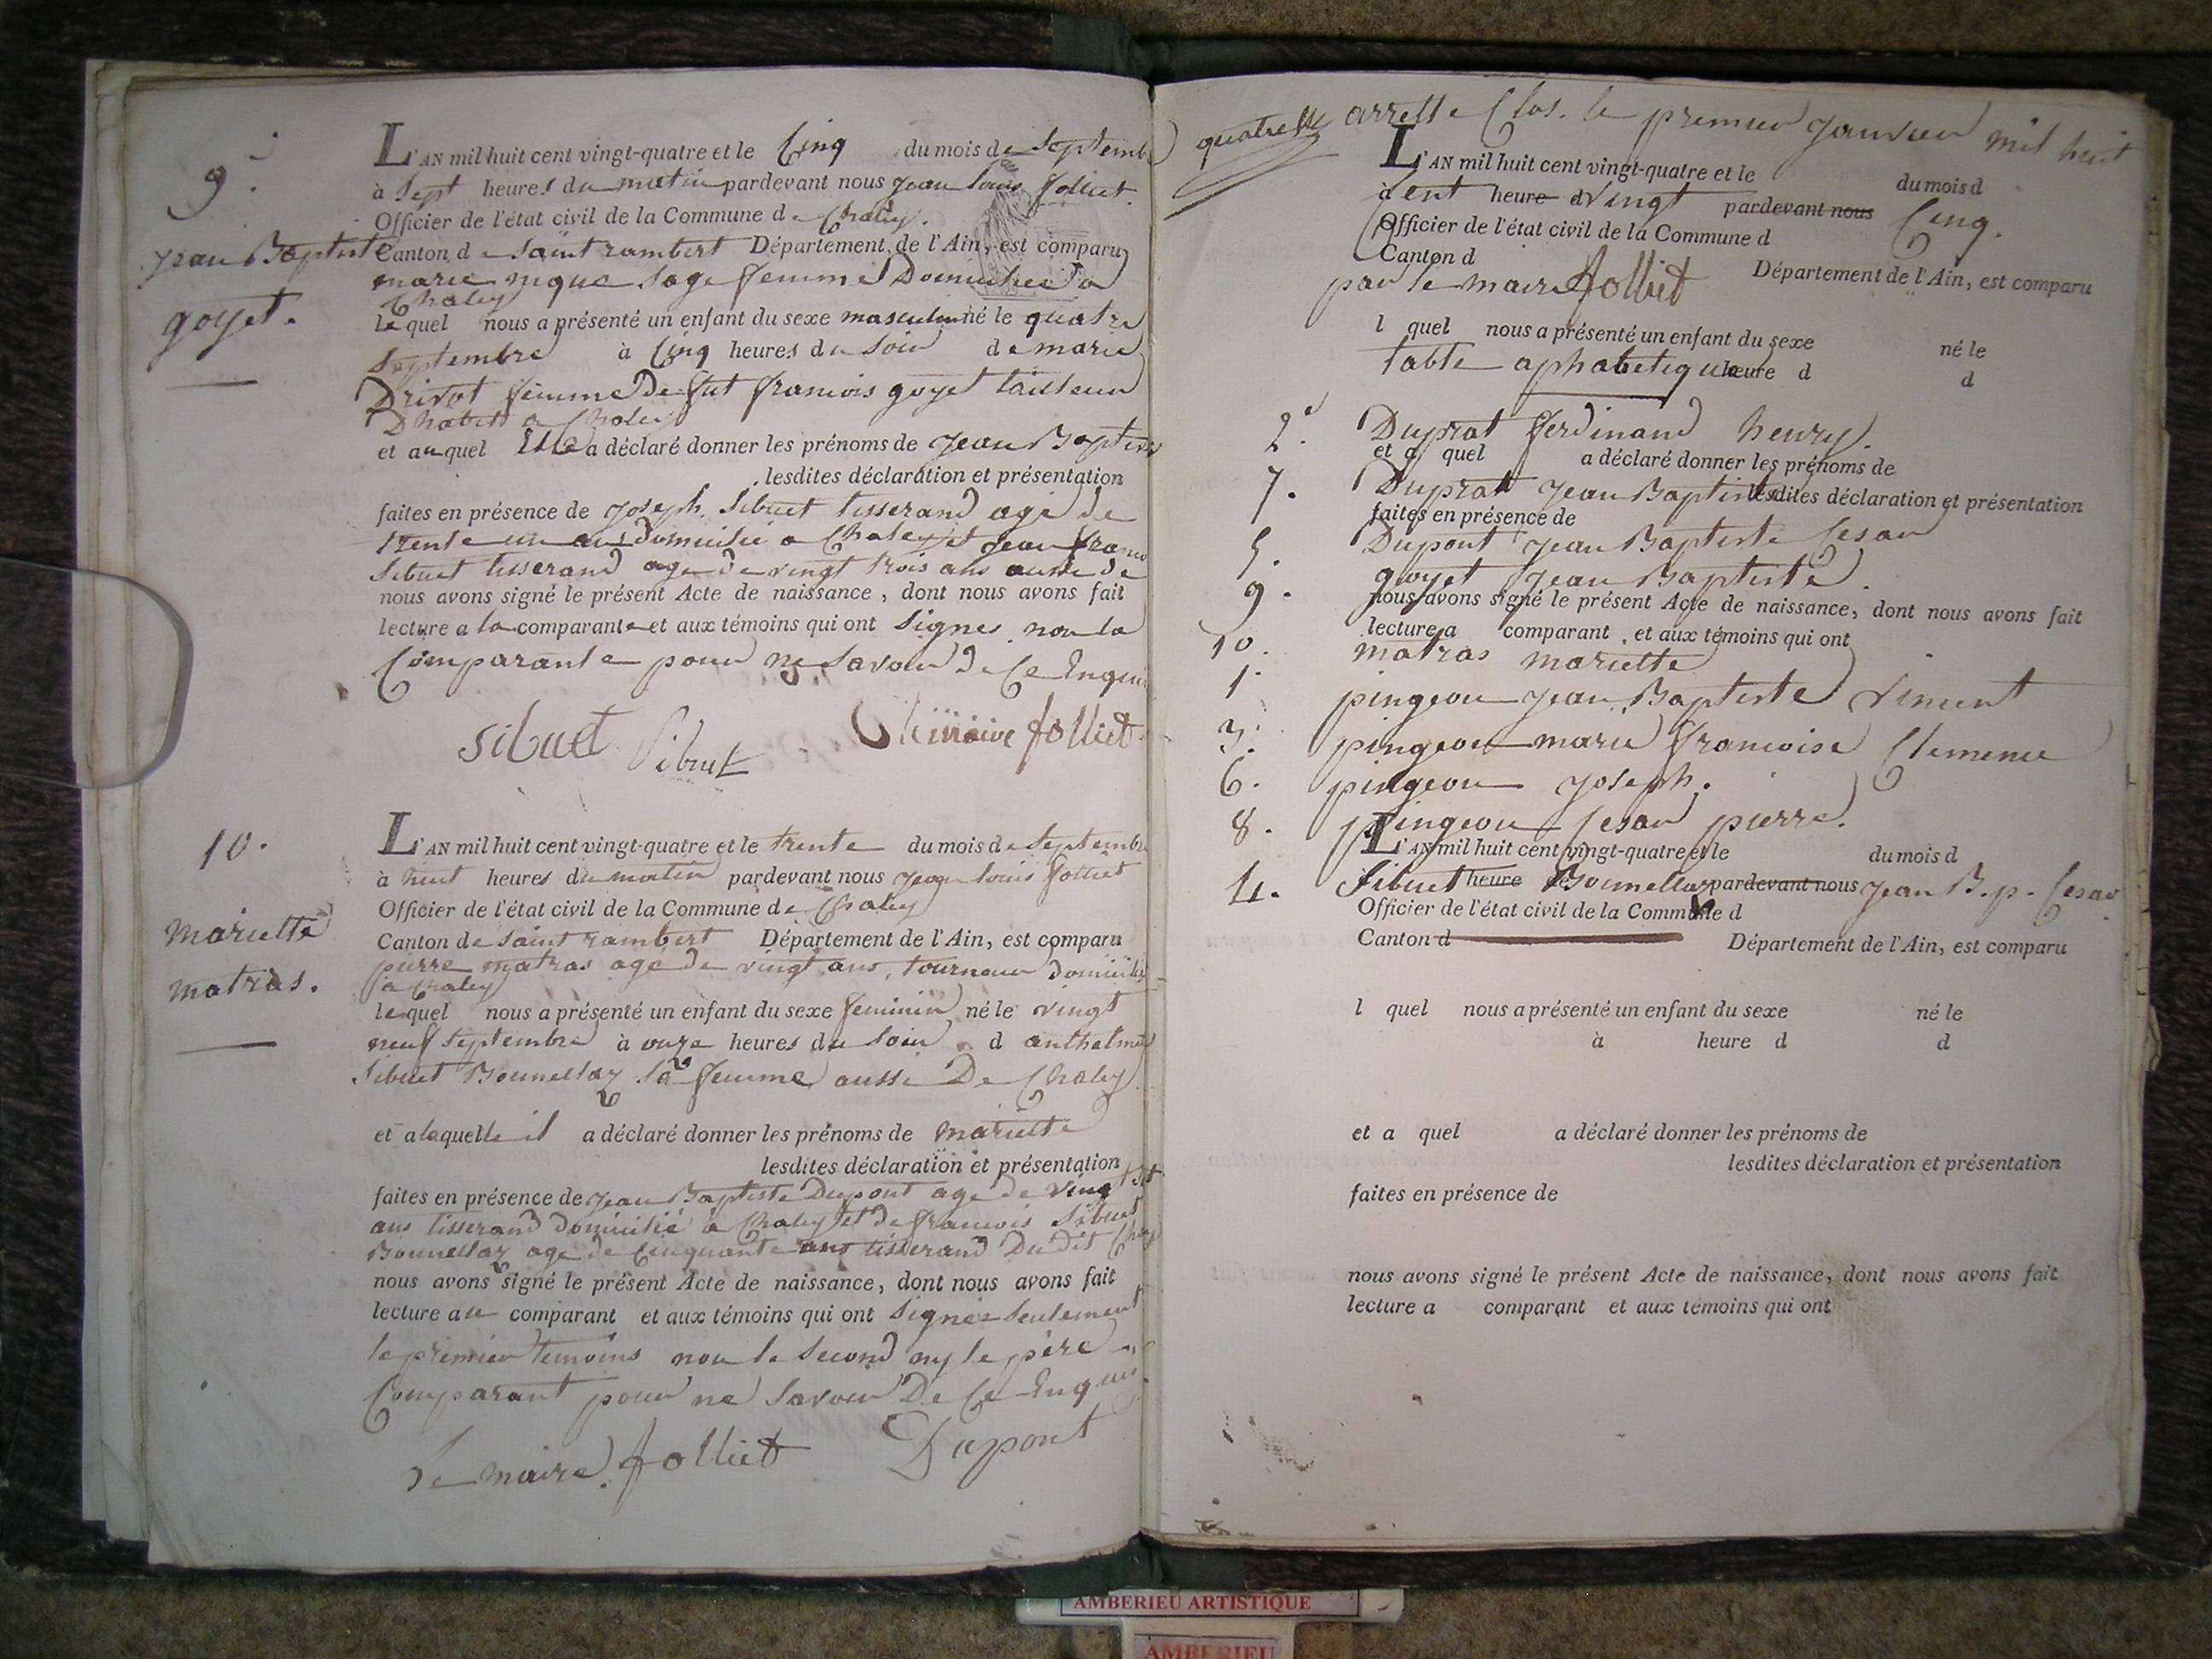 9.
Jean Baptiste
goyet.
L'AN mil huit cent vingt-quatre et le Cinq du mois de Septembre
à Sept heures du matin pardevant nous Jean louis Jolliet.
Officier de l'état civil de la Commune de Chaley.
Canton de Saint rambert Département de l'Ain, est comparu
marie sage femme Domiciliée a
Chaley
lequel nous a présenté un enfant du sexe masculin né le quatre
Septembre à Cinq heures du Soir de marie
Drivot femme De fut francois goyet tailleur
Dhabits a Chaley
et auquel Elle a déclaré donner les prénoms de Jean Baptiste
lesdites déclaration et présentation
faites en présence de Joseph Sibuet tisserand agé de
trente un ans domicilié a Chaley et Jean
Sibuet tisserand age de vingt trois ans aussi de
nous avons signé le présent Acte de naissance, dont nous avons fait
lecture a la comparante et aux témoins qui ont Signes non la
Comparante pour ne Savoir De Ce Enquis
Sibuet Sibuet maire Jolliet
10.
mariette
matras.
L'AN mil huit cent vingt-quatre et le trente du mois de Septembre
à huit heures du matin pardevant nous Jean louis Jolliet
Officier de l'état civil de la Commune de Chaley
Canton de Saint rambert Département de l'Ain, est comparu
pierre matras age de vingt ans, tourneur domicilié
a Chaley
lequel nous a présenté un enfant du sexe feminin né le vingt
neuf Septembre à onze heures du Soir d anthelme
Sibuet Bonnellaz Sa femme aussi De Chaley
et a laquelle il a déclaré donner les prénoms de mariette
lesdites déclaration et présentation
faites en présence de Jean Baptiste Dupont age de vingt
ans tisserand domicilié a Chaley et de francois Sibuet
Bonnellaz age de Cinquante ans tisserand Du Dit
nous avons signé le présent Acte de naissance, dont nous avons fait
lecture au comparant et aux témoins qui ont Signer Seulement
le premier temoins non le Second ny le père
Comparant pour ne Savoir De Ce Enquis
le maire Jolliet Dupont
arresté Clos. le premier Janvier mil huit
quatre
L'AN mil huit cent vingt-quatre et le du mois d
à Cent heure d vingt pardevant nous Cinq.
Officier de l'état civil de la Commune d
Canton d Département de l'Ain, est comparu
par le maire Jolliet
l quel nous a présenté un enfant du sexe né le
table aphabetique heure d d
2. Duprat ferdinand henry.
et a quel a déclaré donner les prénoms de
7. Duprat Jean Baptiste lesdites déclaration et présentation
faites en présence de
5. Dupont Jean Baptiste Cesar
9. goyet Jean Baptiste.
nous avons signé le présent Acte de naissance, dont nous avons fait
lecture a comparant, et aux témoins qui ont
10. matras mariette
1. pingeon Jean Baptiste Vincent
3. pingeon marie francoise Clemence
6. pingeon Joseph.
8. pingeon Cesar pierre.
L'AN mil huit cent vingt-quatre et le du mois d
4. Sibuet heure de Bonnellaz pardevant nous Jean B.p. Cesar
Officier de l'état civil de la Commune d
Canton d Département de l'Ain, est comparu
l quel nous a présenté un enfant du sexe né le
à heure d d
et a quel a déclaré donner les prénoms de
lesdites déclaration et présentation
faites en présence de
nous avons signé le présent Acte de naissance, dont nous avons fait
lecture a comparant et aux témoins qui ont
AMBERIEU ARTISTIQUE
AMBERIEU